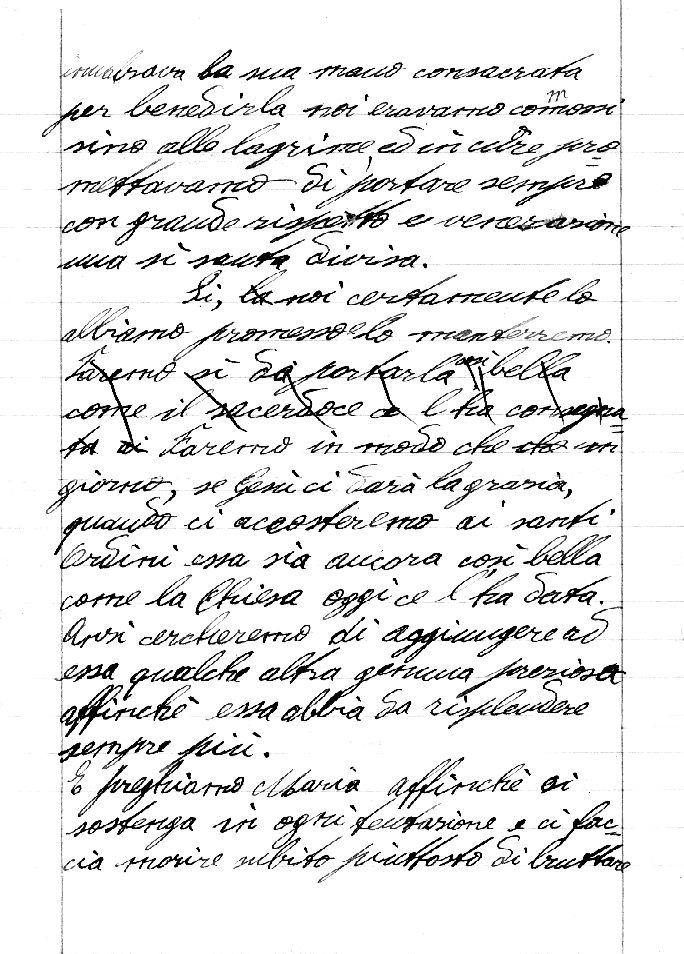 la sua mano consacrata
per benedirla noi eravamo commossi
sino alle lagrime ed in cuore pro=
mettavamo di portare sempre
con grande rispetto e venerazione
una sì santa divisa.
Si, la noi certamente lo
abbiamo promesso e lo manterremo.
Faremo sì da portarla così bella
come il sacerdoce ce l'ha consegna=
ta di Faremo in modo che che un
giorno, se Gesù ci darà la grazia,
quando ci accosteremo ai santi
Ordini essa sia ancora così bella
come la Chiesa oggi ce l'ha data.
Anzi cercheremo di aggiungere ad
essa qualche altra gemma preziosa
affinchè essa abbia da risplendere
sempre più.
E preghiamo Maria affinchè ci
sostenga in ogni tentazione e ci fac=
cia morire subito piuttosto di bruttare